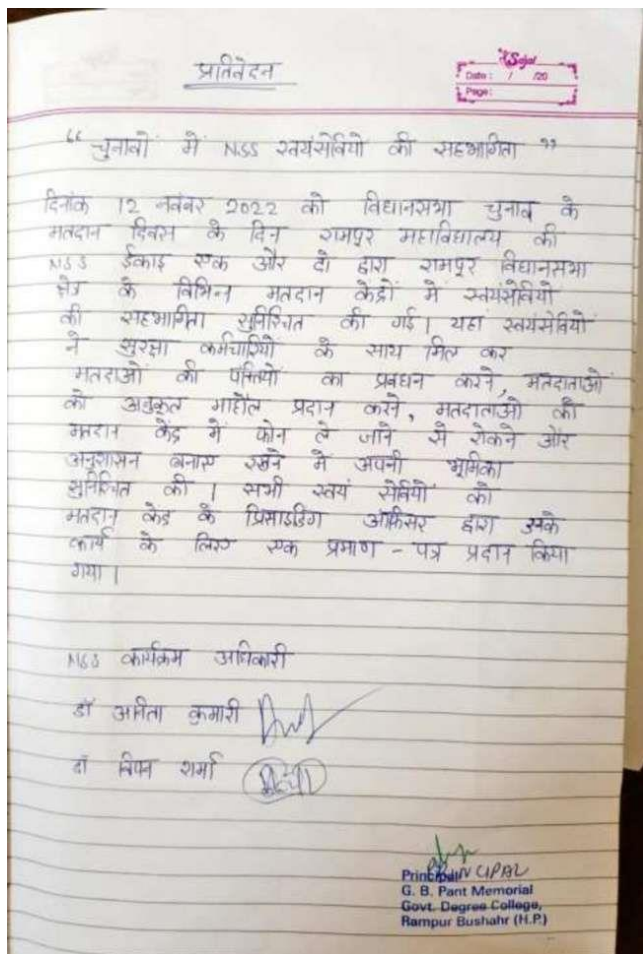 प्रतिवेदन
Sajal
Date : / /20
Page:
“ चुनावों में NSS स्वयंसेवियो की सहभागिता ”
दिनांक 12 नवंबर 2022 को विधानसभा चुनाव के
मतदान दिवस के दिन रामपुर महाविधालय की
NSS ईकाई एक और दो द्वारा रामपुर विधानसभा
क्षेत्र के विभिन्न मतदान केंद्रों में स्वयंसेवियो
की सहभागिता सुनिश्चित की गई। यहां स्वयंसेवियों
ने सुरक्षा कर्मचारियो के साथ मिल कर
मतदाओं की पंक्तियो का प्रबधन करने, मतदाताओं
को अनुकूल माहौल प्रदान करने, मतदाताओ को
मतदान केंद्र में फोन ले जाने से रोकने और
अनुशासन बनाए रखने में अपनी भूमिका
सुनिश्चित की। सभी स्वयं सेवियो को
मतदान केंद्र के प्रिसाइडिंग ऑफिसर द्वारा उनके
कार्य के लिए एक प्रमाण - पत्र प्रदान किया
गया।
NSS कार्यक्रम अधिकारी
डॉ अनिता कुमारी
डॉ विपन शर्मा
PRINCIPAL
Principal
G. B. Pant Memorial
Govt. Degree College,
Rampur Bushahr (H.P.)